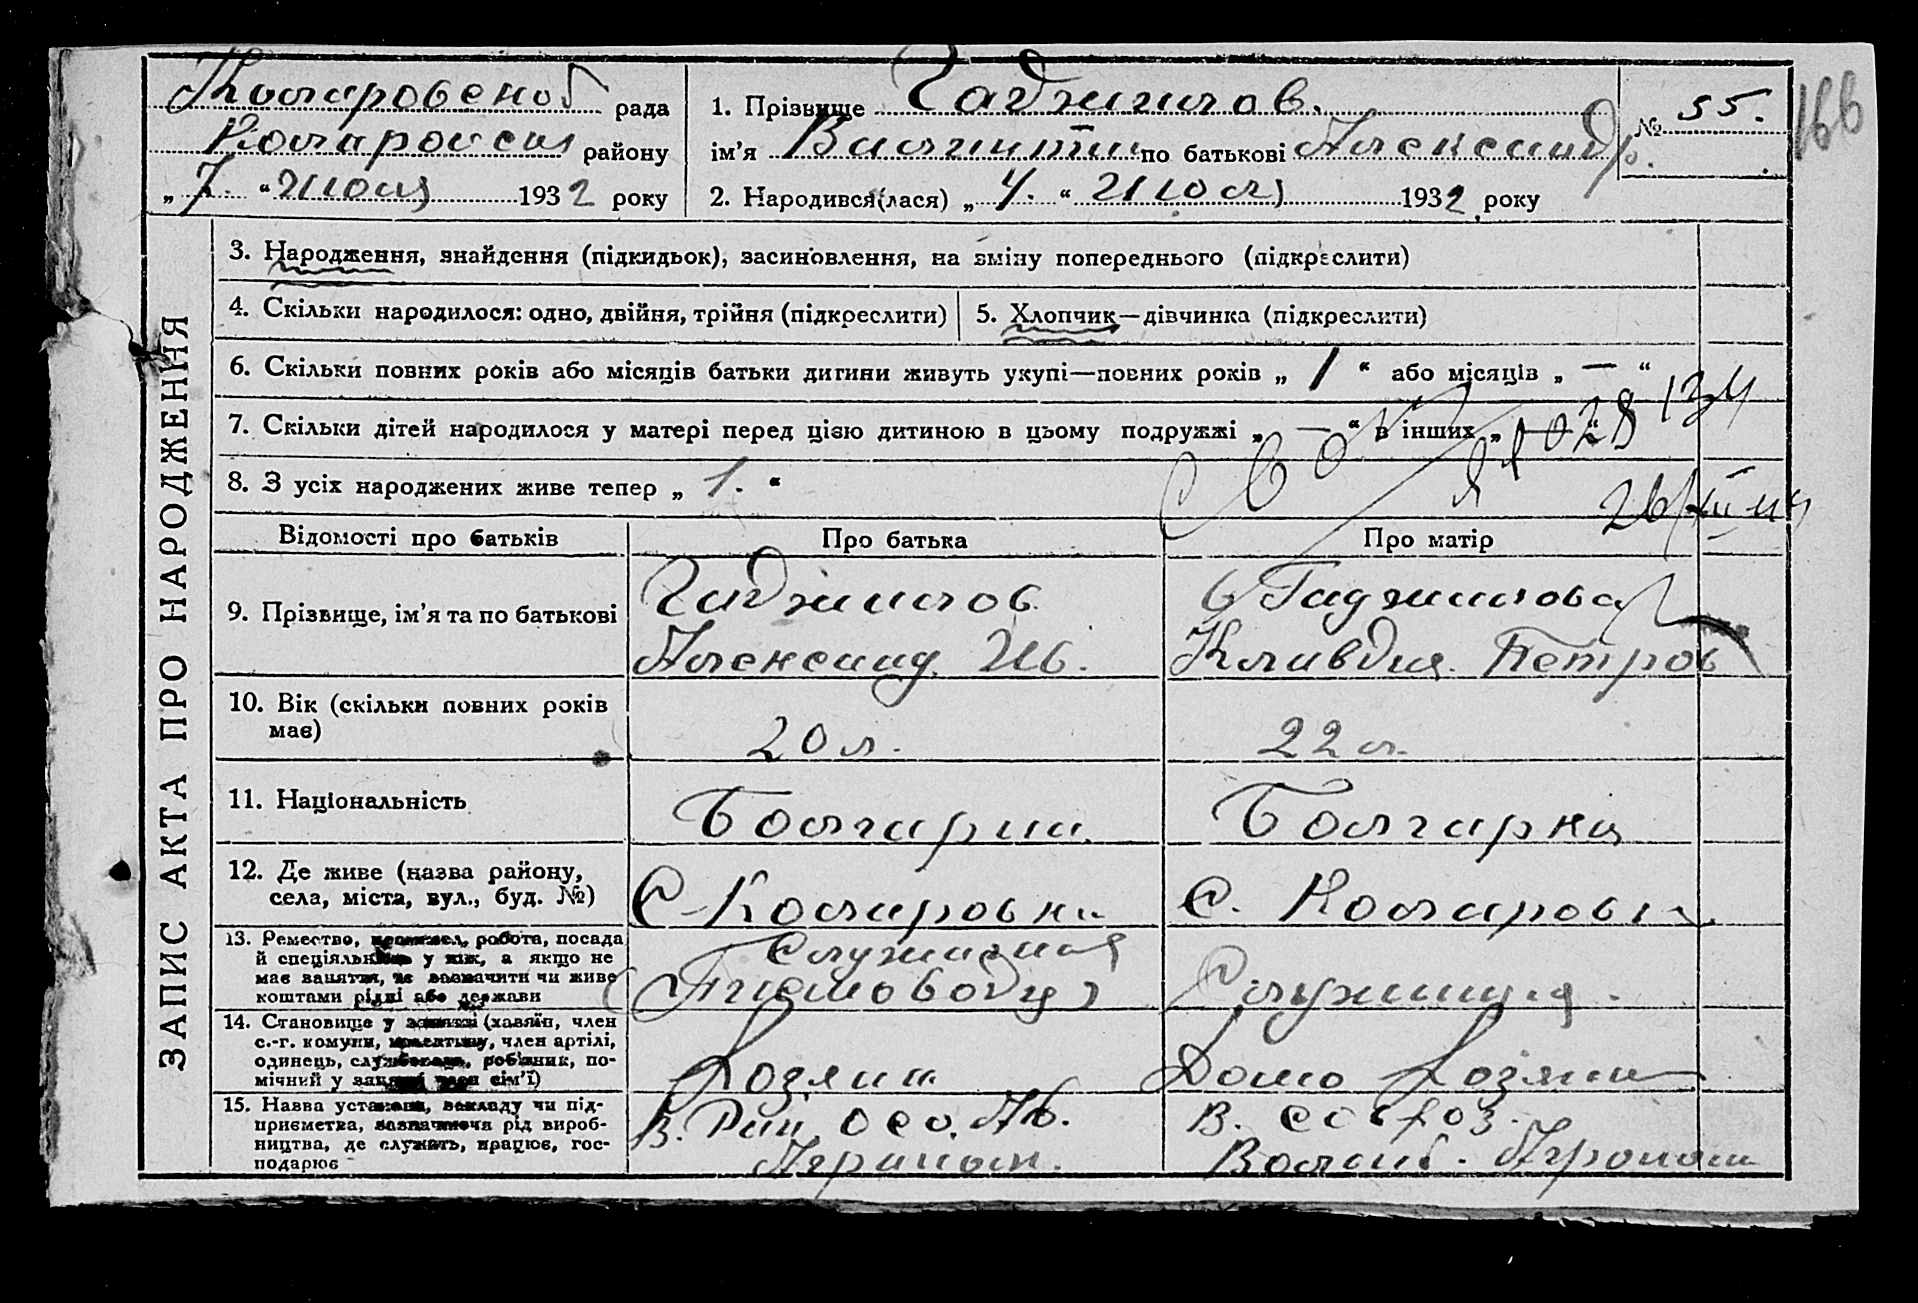 рада
району
„ 7. “ Июля 1932 року
1. Прізвище Гаджилов.
ім'я Валентин по батькові Александр.
2. Народився(лася) „ 4. “ Июля 1932 року
№ 55.
166
ЗАПИС АКТА ПРО НАРОДЖЕННЯ
3. Народження, знайдення (підкидьок), засиновлення, на зміну попереднього (підкреслити)
4. Скільки народилося: одно, двійня, трійня (підкреслити)
5. Хлопчик—дівчинка (підкреслити)
6. Скільки повних років або місяців батьки дитини живуть укупі—повних років „ 1 “ або місяців „ — “
7. Скільки дітей народилося у матері перед цією дитиною в цьому подружжі „ — “ в інших „
8. З усіх народжених живе тепер „ 1. “
Відомості про батьків
Про батька
Про матір
9. Прізвище, ім'я та по батькові
Гаджилов
Александ. Ив.
Гаджилова
Клавдия Петров
10. Вік (скільки повних років
має)
20 л.
22 л.
11. Національність
Болгарин
Болгарка
12. Де живе (назва району,
села, міста, вул., буд. №)
С. Коларовка
С. Коларовка
13. Ремество, промисел, робота, посада
й спеціяльність у них, а якщо не
має заняття, то зазначити чи живе
коштами рідні або держави
Служащий
(Письмовод)
Служащая.
14. Становище у занятті (хазяїн, член
с.-г. комуни, колективу, член артілі,
одинець, службовець, робітник, по-
мічний у занятті член сім'ї)
Хозяин
Домо Хозяин
15. Назва установи, закладу чи під-
приємства, зазначаючи рід вироб-
ництва, де служить, працює, гос-
подарює
В. Рай
В. совхоз.